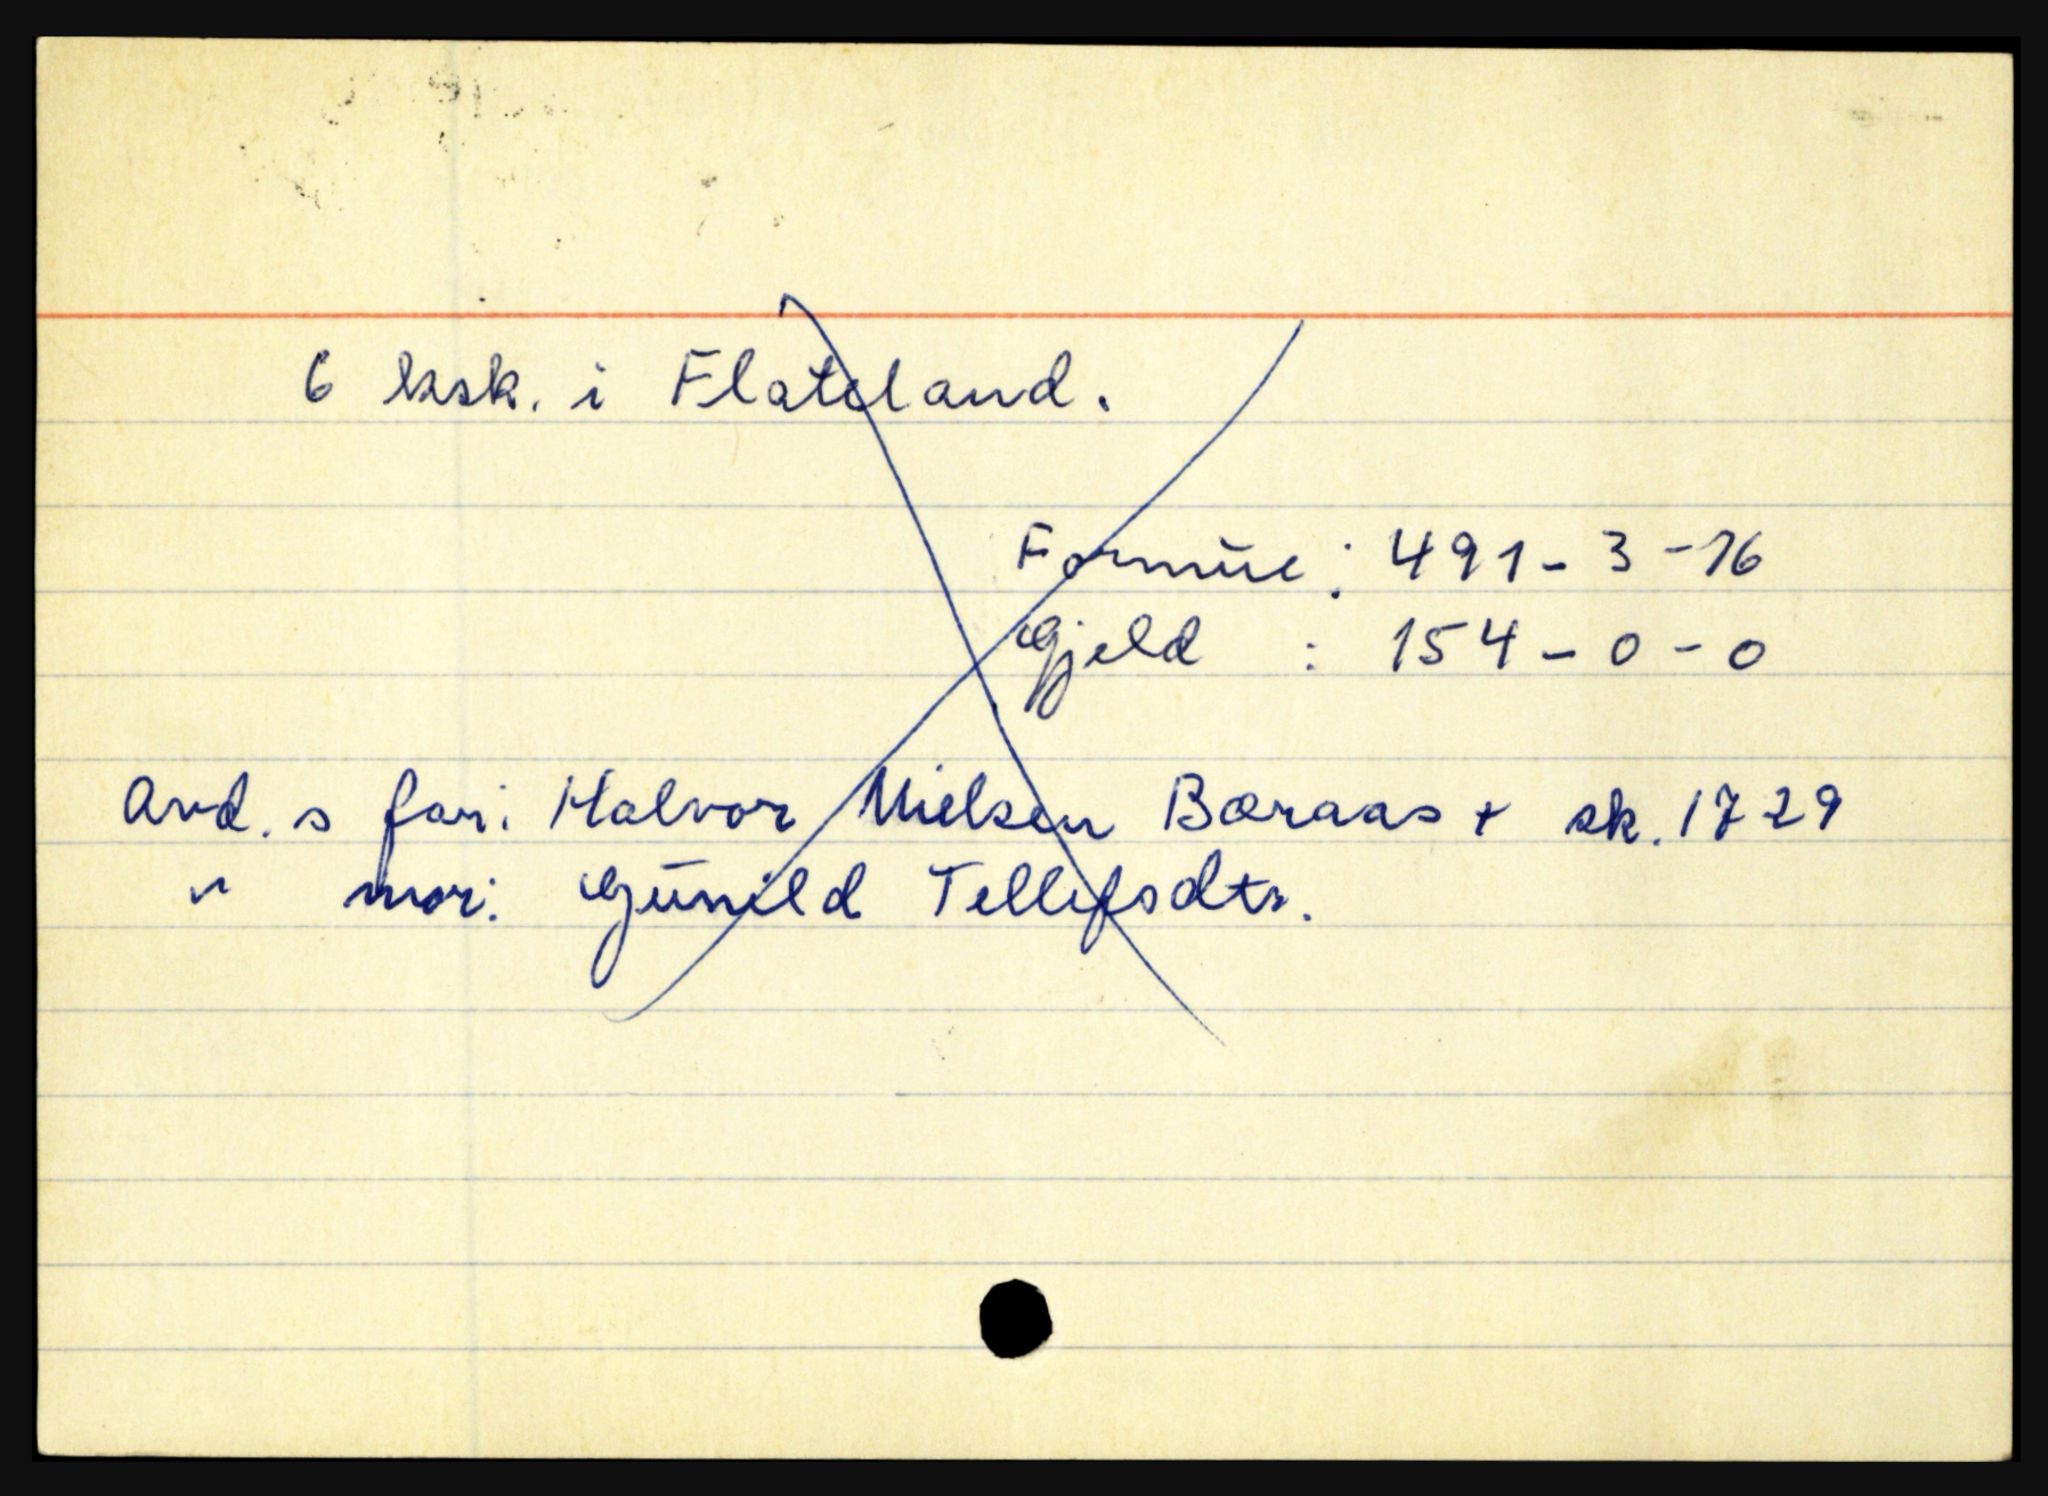 6 ksk. i Flateland.
Formue : 491 - 3 - 16
Gjeld : 154 - 0 - 0
Avd. s far: Halvor Nielsen Børaas + sk. 1729
" mor: Gunild Tellefsdtr.